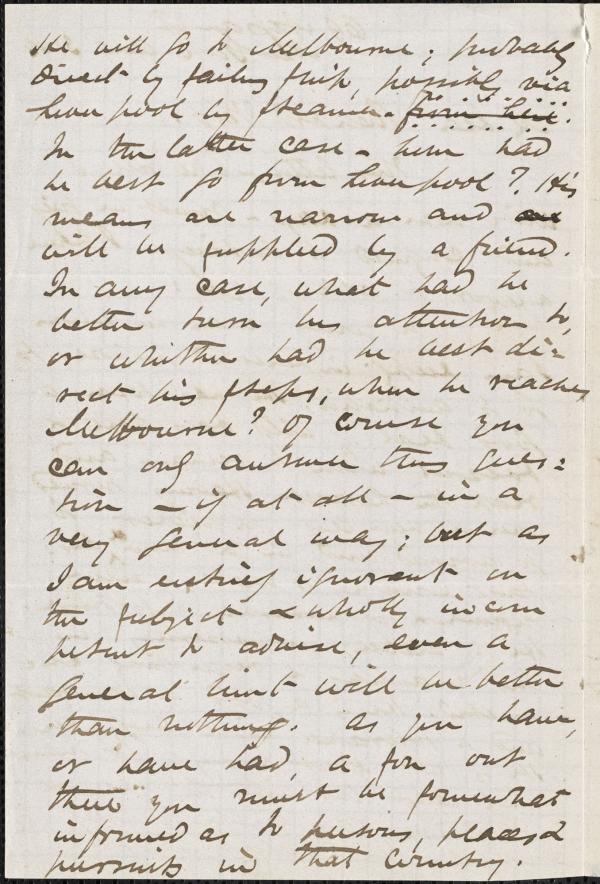 He will go to Melbourne; probably
direct by sailing ship, possibly via
Liverpool by steamer - from here.
In the latter case - how had
he best go from Liverpool? His
means are narrow and are
will be supplied by a friend.
In any case, what had he
better turn his attention to,
or whither had he best di=
rect his steps, when he reaches
Melbourne? Of course you
can only answer this ques=
tion - if at all - in a
very general way; but as
I am entirely ignorant on
the subject & wholly incom
petent to advise, even a
general hint will be better
than nothing. As you have,
or have had, a son out
there you must be somewhat
informed as to persons, places &
pursuits in that country.